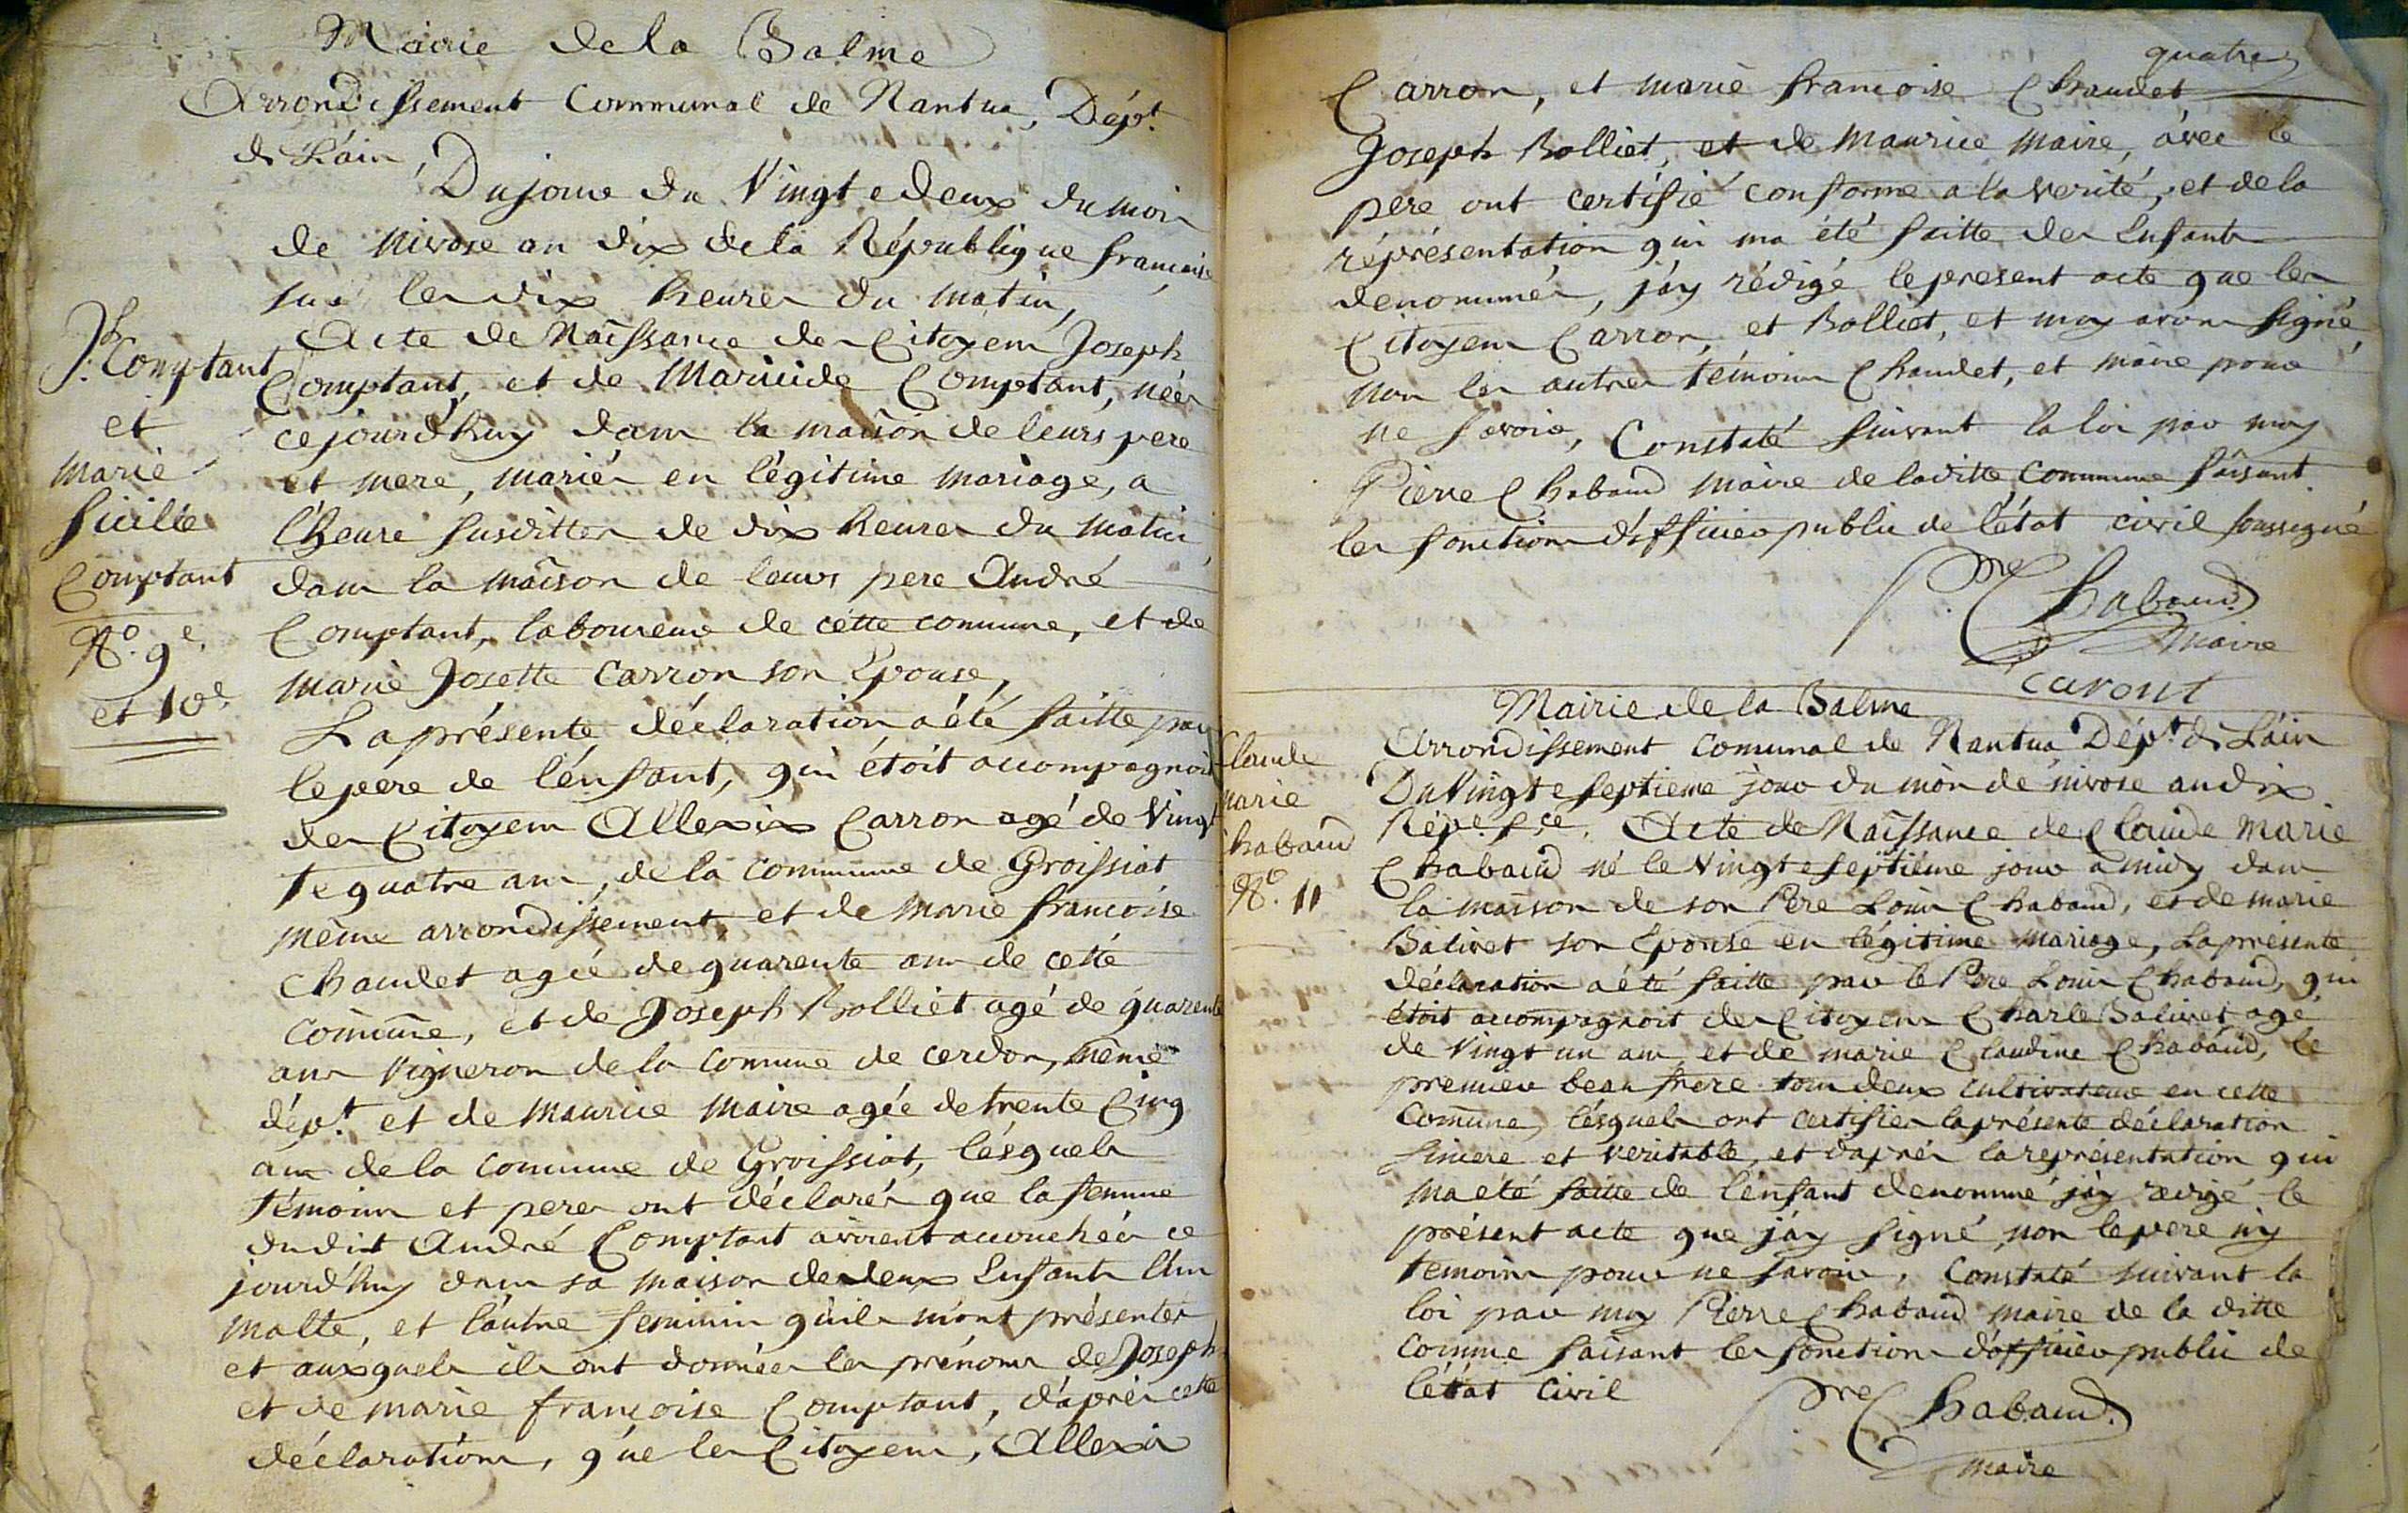 Mairie de la Balme
Arrondissement Communal de Nantua, Dép.t
de L'áin,
Du jour du Vingt e deux du mois
de nivose an dix de la République française
sur les dix heures du matin,
Acte de Naissance des Citoyens Joseph
Comptant, et de Comptant, nées
ce jourd'huy dans la maison de leurs pere
et mere, mariés en légitime mariage, a
l'heure susdittes de dix heures du matin
dans la maison de leurs pere André
Comptant, laboureur de cétte commune, et de
marie Josette Carron son Epouse,
La présente déclaration a été faitte par
le peére de l'énfant, qui étoit accompagnoit
des Citoyens Allexis Carron agé de Vingt
te quatre ans, de la commune de Groissiat
même arrondissement, et de marie francoise
Chaudet agée de quarente ans de cette
commune, et de Joseph Bolliet agé de quarente
ans Vigneron de la Commune de cerdon, même
dép.t et de maurice maire agée de trente Cinq
ans de la commune de Groissiat, lésquels
témoins et peres ont déclarés que la femme
dudit André Comptant avoient accouchéés ce
jourd'huy dans sa maison de deux Enfants l'un
malle, et l'áutre feminin qu'ils m'ont présentés
et auxquels ils ont donnés les prénoms de Joseph
et de marie françoise Comptant, d'áprés cette
déclarations, que les Citoyens, Allexis
J.ph Comptant
et
marie
Comptant
N.o 9e.
et 10e.
quatre
Carron, et marie francoise Chaudet
Joseph Bolliet, et de Maurice maire, avec le
pere ont certifié conforme a la verité, et de la
réprésentation qui ma été faitte des Enfants
denommés, j'áy rédigé le present acte que les
Citoyens Carron, et Bolliet, et moy avons signé,
non les autres témoins Chaudet, et maire pour
ne savoir, Constaté suivant la loi par moy
Pierre Chabaud maire de laditte Commune faisant
les fonctions d'officier public de l'état civil soussigné
P.re Chabaud
maire
caront
Mairie de la Balme
Arrondissement Comunal de Nantua Dép.t de L'áin
Du Vingt e septieme jour du mois de nivose an dix
Rép.e f.çe. Acte de Naissance de Claude Marie
Chabaud né le Vingt e septiéme jour a midy dans
la maison de son Pere Louis Chabaud, et de marie
Balivet son Epouse en légitime mariage, La présente
déclaration a été faitte par le Pere Louis Chabaud, qui
étoit accompagnoit des Citoyens Charle Balivet agé
de Vingt un ans, et de marie Claudine Chabaud, le
premier beau frere tous deux cultivateurs en cette
Commune, lésquels ont certifies la présente déclaration
sincere et veritable, et d'aprés la représentation qui
ma eté faitte de l'énfant denommé j'áy redigé le
présent acte que j'áy signé non le pere ny
temoins pour ne savoir. Constaté suivant la
loi par moy Pierre Chabaud maire de la ditte
Comune faisant les fonctions d'officier public de
l'état Civil
P.re Chabaud
maire
Claude
marie
Chabaud
N.o 11